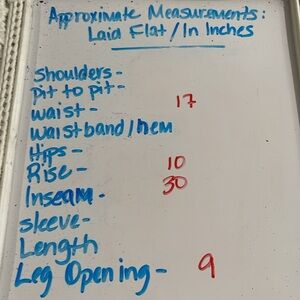 Approximate Measurements:
Laid Flat/In Inches
Shoulders-
Pit to pit-
waist- 17
waistband/hem
Hips-
Rise- 10
Inseam- 30
sleeve-
Length
Leg Opening- 9